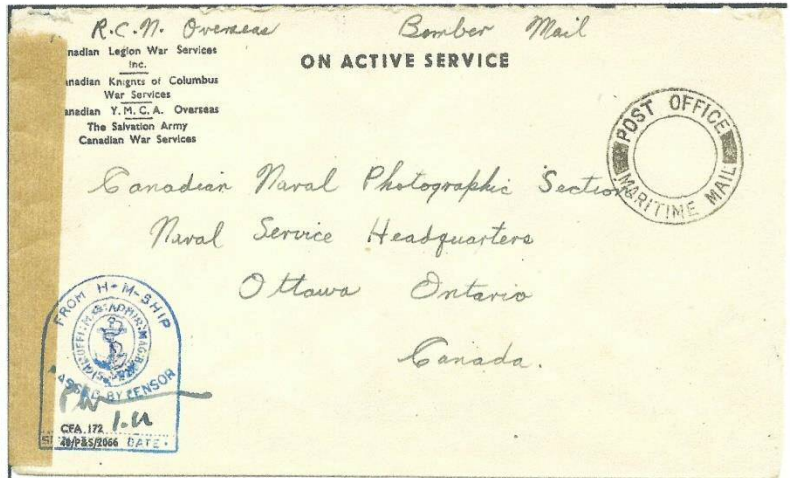 R.C.N. Overseas Bomber Mail
anadian Legion War Services
Inc.
anadian Knights of Columbus
War Services
anadian Y.M.C.A. Overseas
The Salvation Army
Canadian War Services
ON ACTIVE SERVICE
POST OFFICE
MARITIME MAIL
Canadian Naval Photographic Section
Naval Service Headquarters
Ottawa Ontario
Canada.
FROM H-M-SHIP
ASSED BY CENSOR
CFA 172
48/P&S/2066 DATE